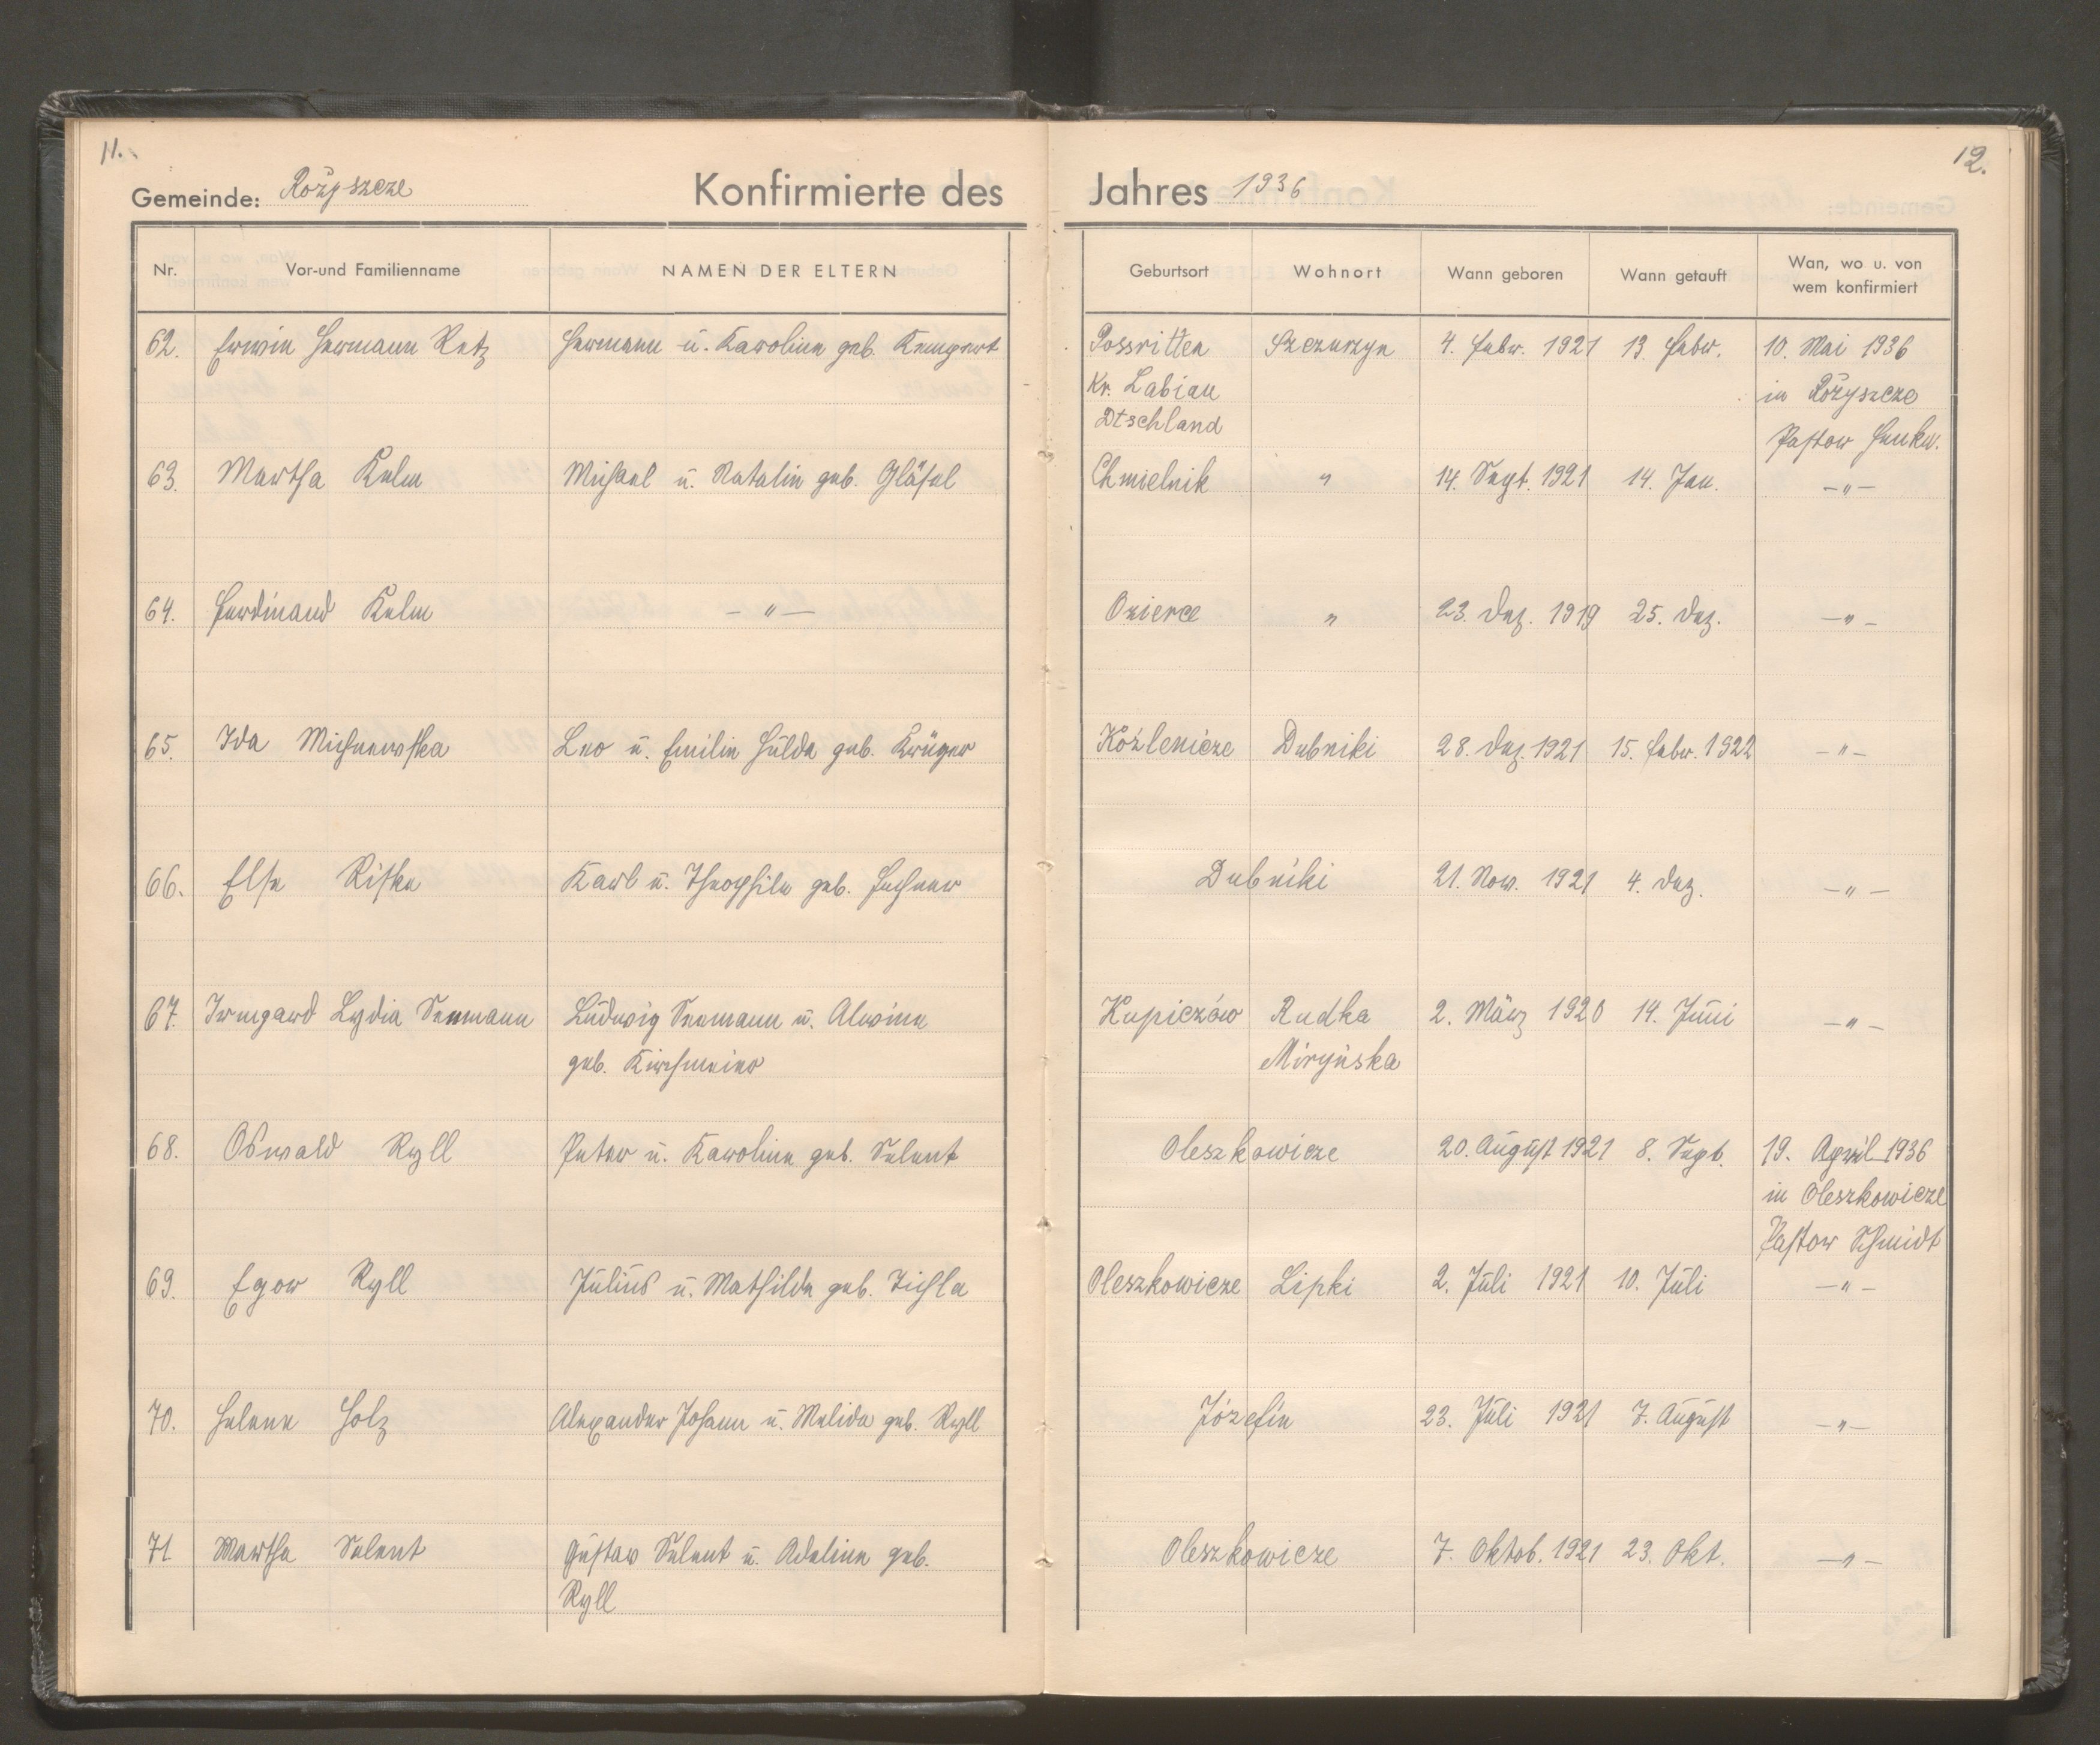 11.
12.
Gemeinde: Rożyszcze Konfirmierte des Jahres 1936
Nr. Vor-und Familienname NAMEN DER ELTERN Geburtsort Wohnort Wann geboren Wann getauft Wan, wo u. von
wem konfirmiert
62. Erwin Hermann Retz Hermann u. Karoline geb. Kempert Possritten Szczurzyn 4. Febr. 1921 13. Febr. 10. Mai 1936
Kr. Labiau in Rożyszcze
Dtschland Pastor Henke.
63. Martha Kelm Michael u. Natalie geb. Gläsel Chmielnik " 14. Sept. 1921 14. Jan. –"–
64. Ferdinand Kelm –"– Ozierce " 23. Dez. 1919 25. Dez. –"–
65. Ida Michnewska Leo u. Emilie Hulda geb. Krüger Koźlenicze Dubniki 28. Dez. 1921 15. Febr. 1922 –"–
66. Else Riske Karl u. Theophile geb. Fechner Dubniki 21. Nov. 1921 4. Dez. –"–
67. Irmgard Lydia Semann Ludwig Semann u. Alwine Kupiczów Rudka 2. März 1920 14. Juni –"–
geb. Kirchmeier Miryńska
68. Oswald Ryll Peter u. Karoline geb. Selent Oleszkowicze 20. August 1921 8. Sept. 19. April 1936
in Oleszkowicze
Pastor Schmidt
69. Egor Ryll Julius u. Mathilde geb. Zichla Oleszkowicze Lipki 2. Juli 1921 10. Juli –"–
70. Helene Holz Alexander Johann u. Melida geb. Ryll Józefin 23. Juli 1921 7. August –"–
71 Martha Selent Gustav Selent u. Adeline geb. Oleszkowicze 7. Oktob. 1921 23. Okt. –"–
Ryll